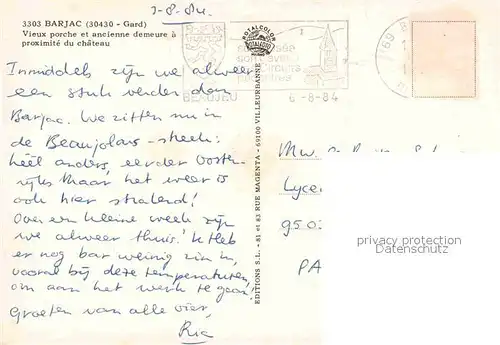 3-8-84.
3303 BARJAC (30430 - Gard)
Vieux porche et ancienne demeure à
proximité du château
Inmiddels zijn we alweer
een stuk verder dan
Barjac. We zitten nu in
de Beaujolais-streek:
heel anders, eerder Oosten-
rijks. Maar het weer is
ook hier stralend!
Over een kleine week zijn
we alweer thuis! Ik heb
er nog bar weinig zin in,
vooral bij deze temperaturen,
om aan het werk te gaan!
Groeten van alle vier,
Ria
ROTALCOLOR
BEAUJEU
6-8-84
69
EDITIONS S.L. - 81 et 83 RUE MAGENTA - 69100 VILLEURBANNE
Mw.
Lycee
950
PA
copyright protection
Datenschutz